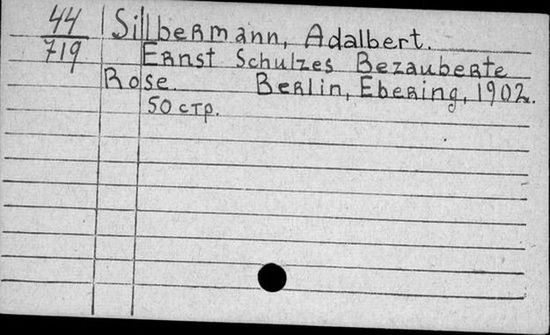 44 Silbermann, Adalbert.
719 Ernst Schulzes Bezauberte
Rose. Berlin, Ebering, 1902.
50 стр.